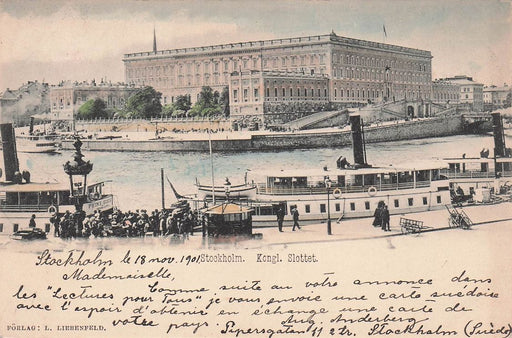 Stockholm le 18 nov. 1901
Stockholm. Kongl. Slottet.
Mademoiselle,
Comme suite au votre annonce dans
les "Lectures pour Tous" je vous envoie une carte suedoise
avec l'espoir d'obtenir en échange une carte de
votre pays. Aug. Anderberg
Pipersgatan 11 2tr. Stockholm (Suède)
FÖRLAG: L. LIEBENFELD.